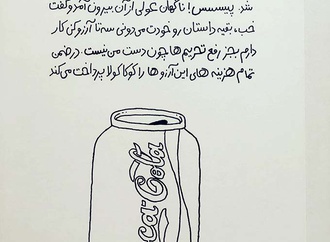 شد. پیسسس! ناگهان غولی از آن بیرون آمد و گفت
خب، بقیه داستان رو خودت می‌دونی سه تا آرزو کنی کار
دارم بجز رفع تحریم‌ها چون دست من نیست. در ضمن
تمام هزینه‌های این آرزوها را کوکاکولا پرداخت می‌کند
Coca-Cola